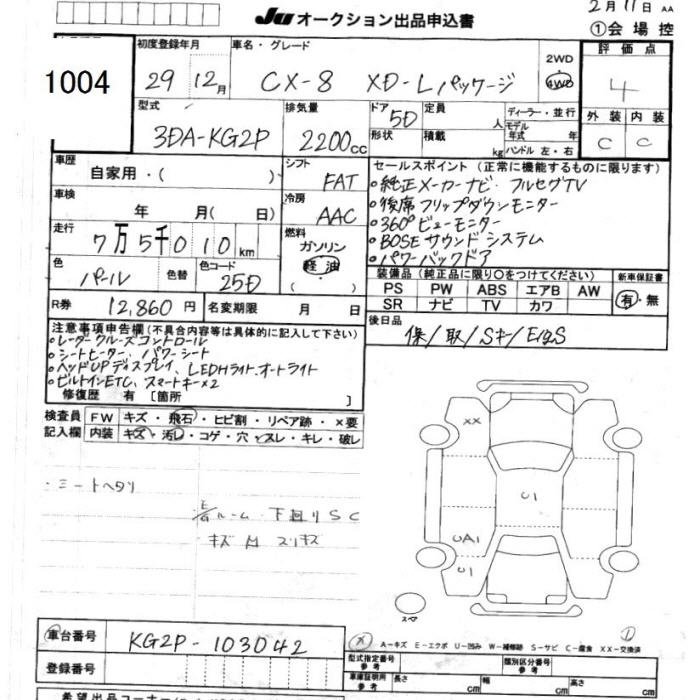 2月11日 AA
JU オークション出品申込書
①会場控
1004
初度登録年月
29 12月
車名・グレード
CX-8 XD-Lパッケージ
2WD
4WD
評価点
4
型式
3DA-KG2P
排気量
2200cc
ドア 5D
形状
定員 人
積載 kg
ディーラー・並行
モデル年式 年
ハンドル 左・右
外装 内装
C C
車歴
自家用・( )
シフト
FAT
車検
年 月( 日)
冷房
AAC
走行
7万5千010km
燃料
ガソリン
軽油
( )
色
パール
色替
色コード
25D
R券 12,860円
名変期限 月 日
セールスポイント(正常に機能するものに限ります)
•純正メーカーナビ・フルセグTV
•後席フリップダウンモニター
•360°ビューモニター
•BOSEサウンドシステム
•パワーバックドア
装備品(純正品に限り○をつけてください)
新車保証書
PS PW ABS エアB AW
SR ナビ TV カワ
有・無
後日品
保/取/Sキー/
注意事項申告欄(不具合内容等は具体的に記入して下さい)
•レーダークルーズコントロール
•シートヒーター、パワーシート
•ヘッドUPディスプレイ、LEDHライト.オートライト
•ビルトインETC、スマートキー×2
修復歴 有 [箇所 ]
検査員記入欄
FW キズ・飛石・ヒビ割・リペア跡・×要
内装 キズ・汚レ・コゲ・穴・スレ・キレ・破レ
・シートヘタリ
E/Gルーム・下回りSC
キズ M スリキズ
XX
U1
UA1
U1
スペ
車台番号 KG2P-103042
登録番号
A-キズ E-エクボ U-凹み W-補修跡 S-サビ C-腐食 XX-交換済
型式指定番号 参考
類別区分番号 参考
車庫証明用 参考
長さ cm
幅 cm
高さ cm
希望出品コーナー